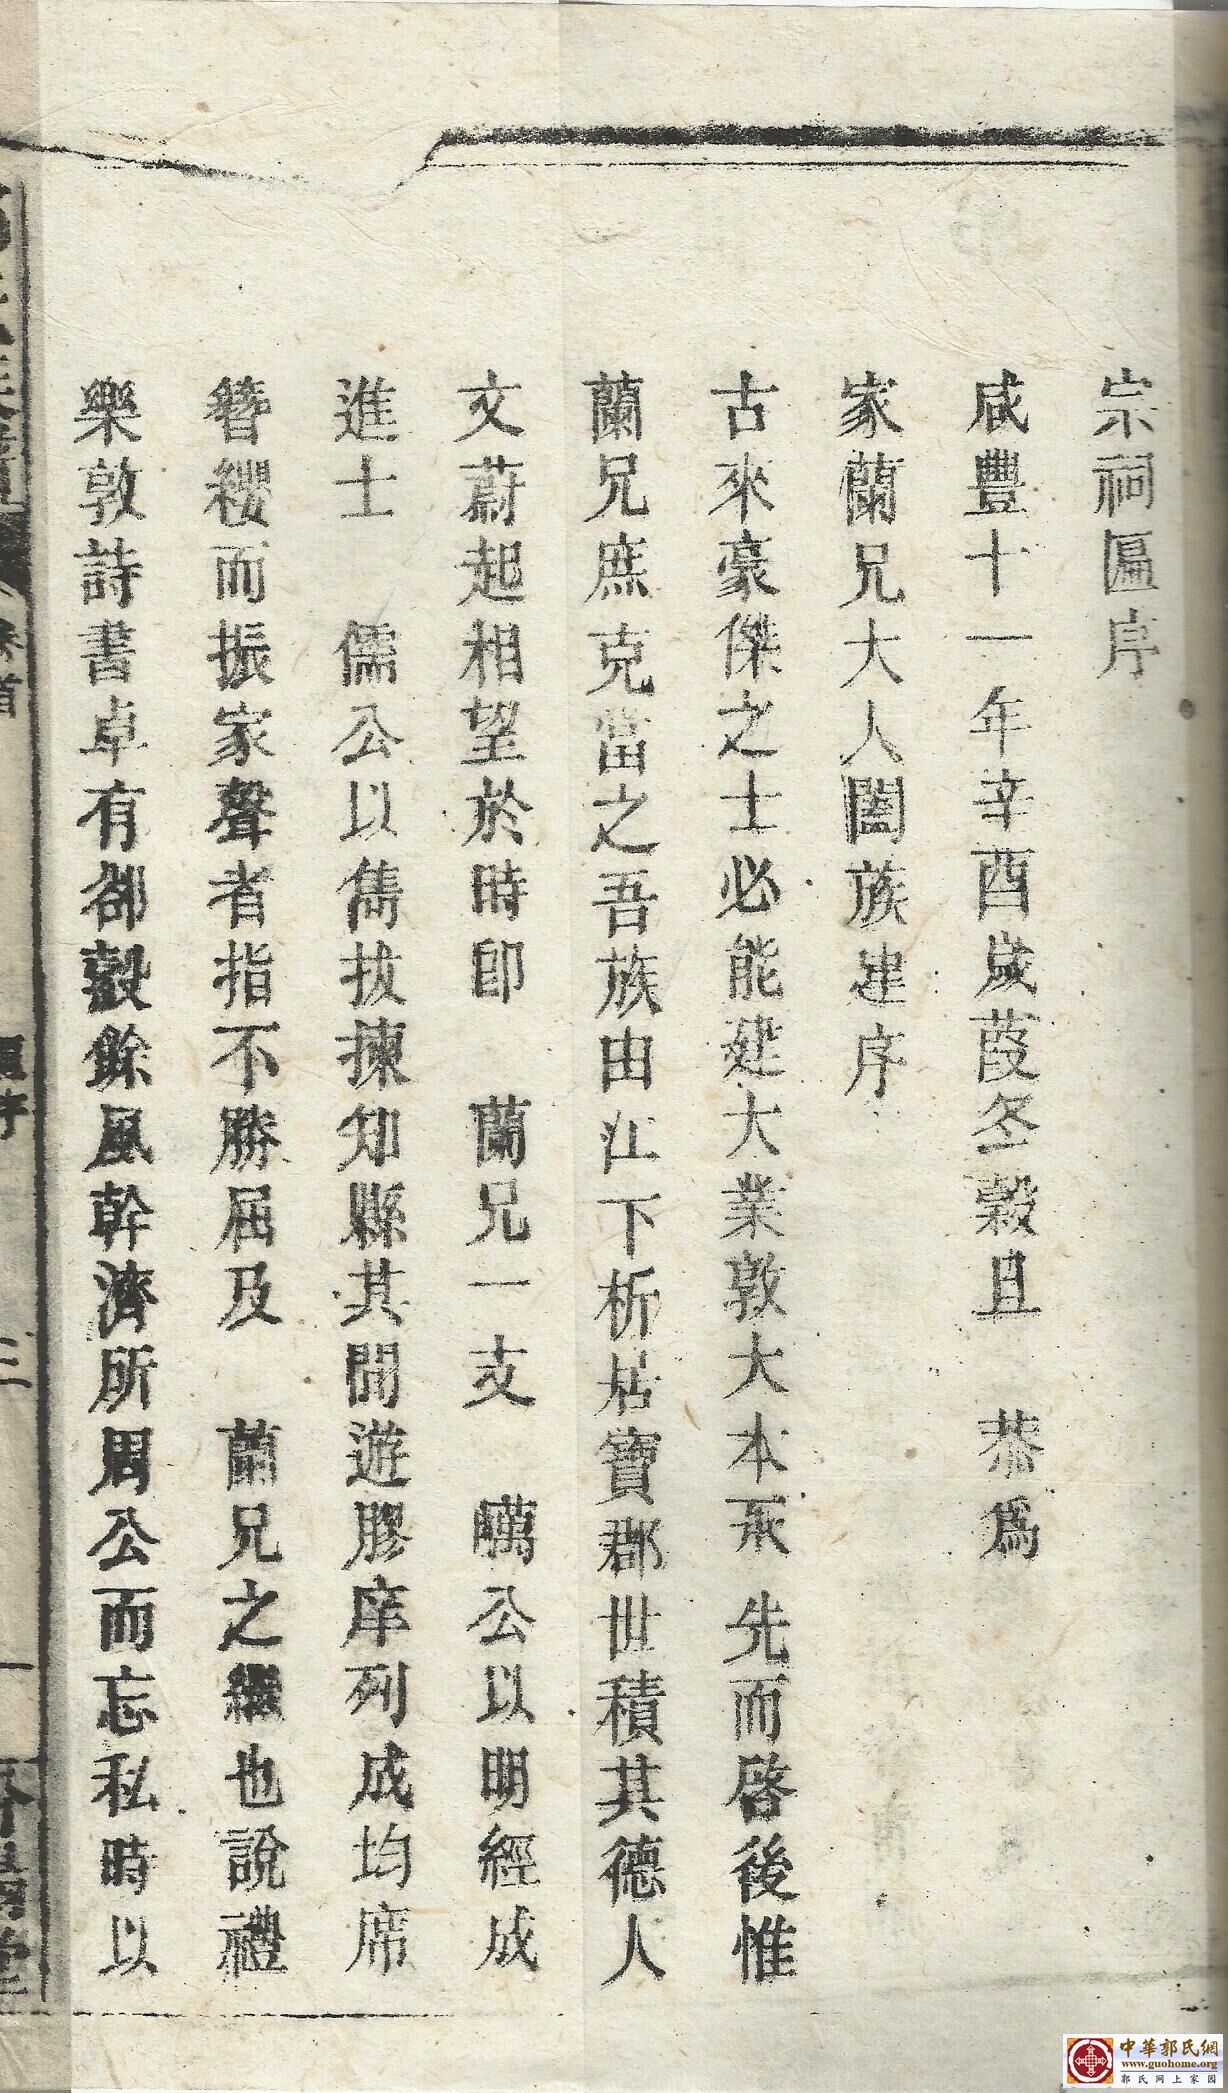 宗祠匾序
咸豐十一年辛酉歲葭冬穀旦　恭爲
家蘭兄大人闔族建序
古來豪傑之士必能建大業敦大本承先而啓後惟
蘭兄庶克當之吾族由江下析枯寶郡世積其德人
文蔚起相望於時卽　蘭兄一支　公以明經成
進士　儒公以雋拔揀知縣其間遊膠庠列成均席
簪纓而振家聲者指不勝屈及　蘭兄之繼也說禮
樂敦詩書卓有郤縠餘風幹濟所周公而忘私時以
卷首
匾序
三
中華郭氏網
www.guohome.org
郭氏网上家园